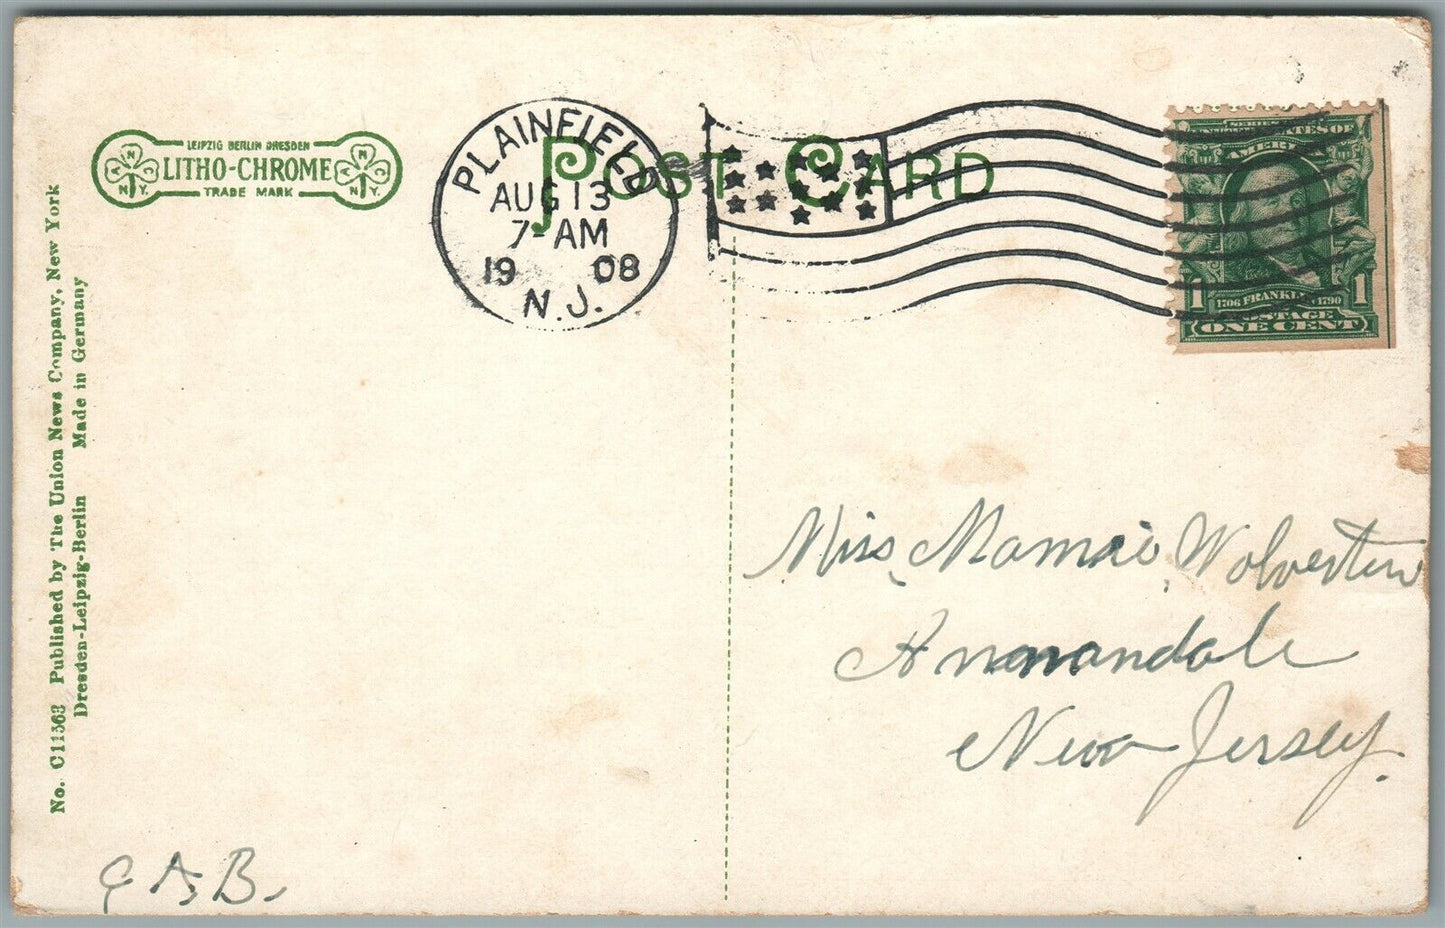 LEIPZIG BERLIN DRESDEN
LITHO-CHROME
TRADE MARK
A N C N.Y.
A N C N.Y.
PLAINFIELD
AUG 13
7-AM
1908
N.J.
POST CARD
SERIES
UNITED STATES OF
AMERICA
1706 FRANKLIN 1790
1 1
POSTAGE
ONE CENT
No. C11563 Published by The Union News Company, New York
Dresden-Leipzig-Berlin Made in Germany
Miss Mamie Wolverton
Annandale
New Jersey.
A. B.